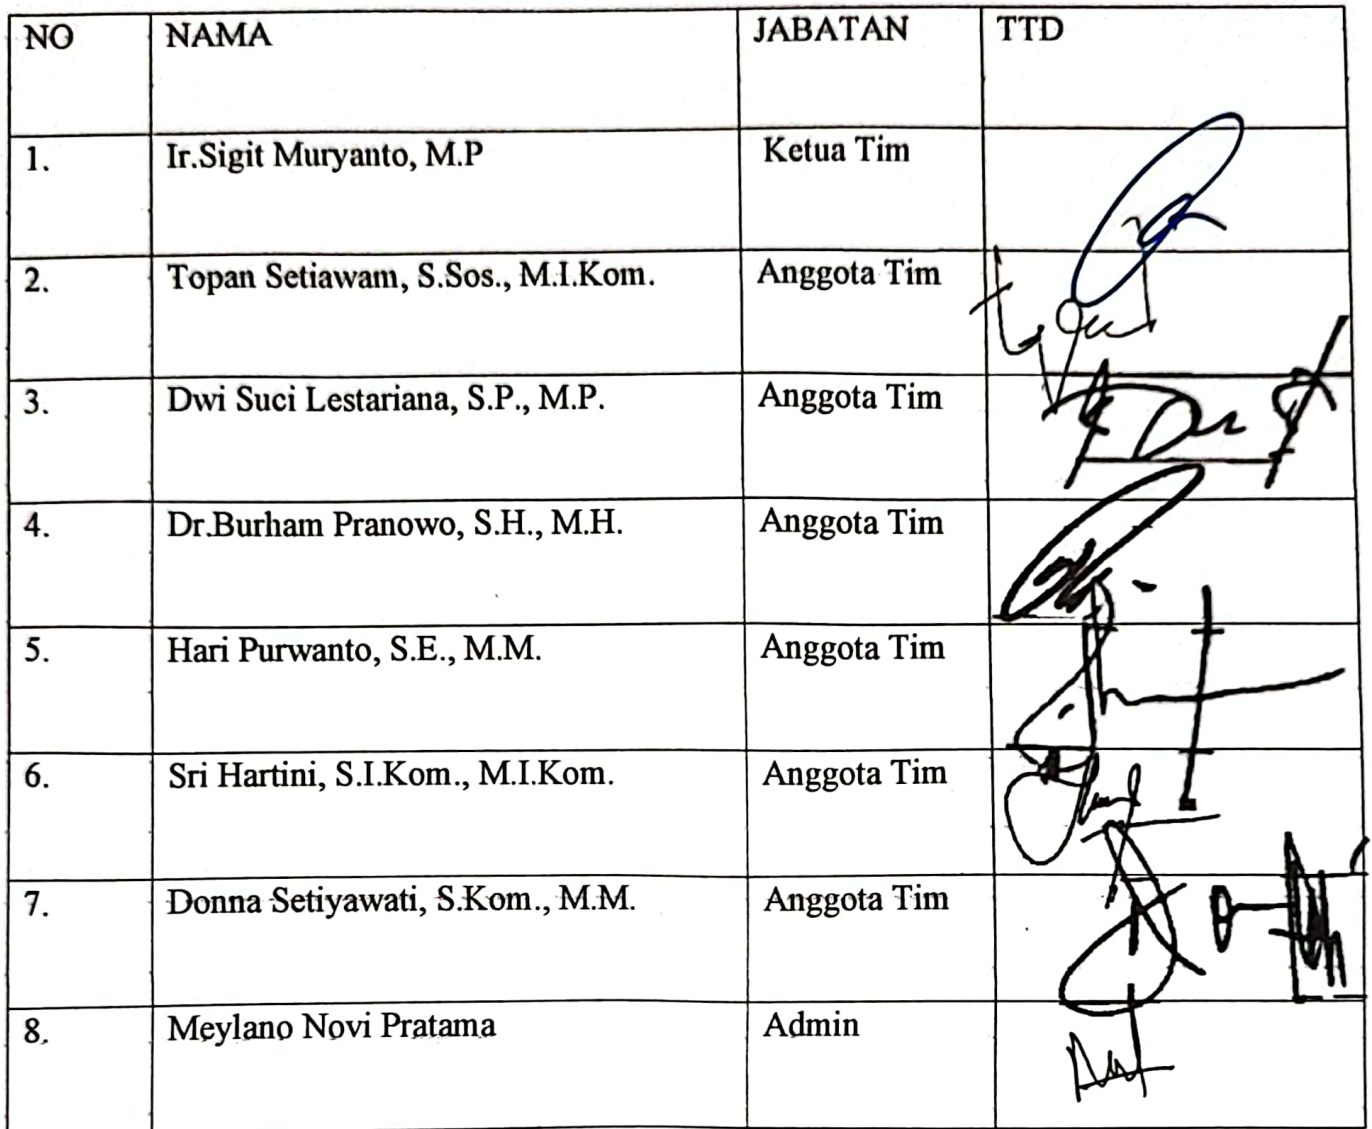 NO NAMA JABATAN TTD
1. Ir.Sigit Muryanto, M.P Ketua Tim
2. Topan Setiawam, S.Sos., M.I.Kom. Anggota Tim
3. Dwi Suci Lestariana, S.P., M.P. Anggota Tim
4. Dr.Burham Pranowo, S.H., M.H. Anggota Tim
5. Hari Purwanto, S.E., M.M. Anggota Tim
6. Sri Hartini, S.I.Kom., M.I.Kom. Anggota Tim
7. Donna Setiyawati, S.Kom., M.M. Anggota Tim
8. Meylano Novi Pratama Admin